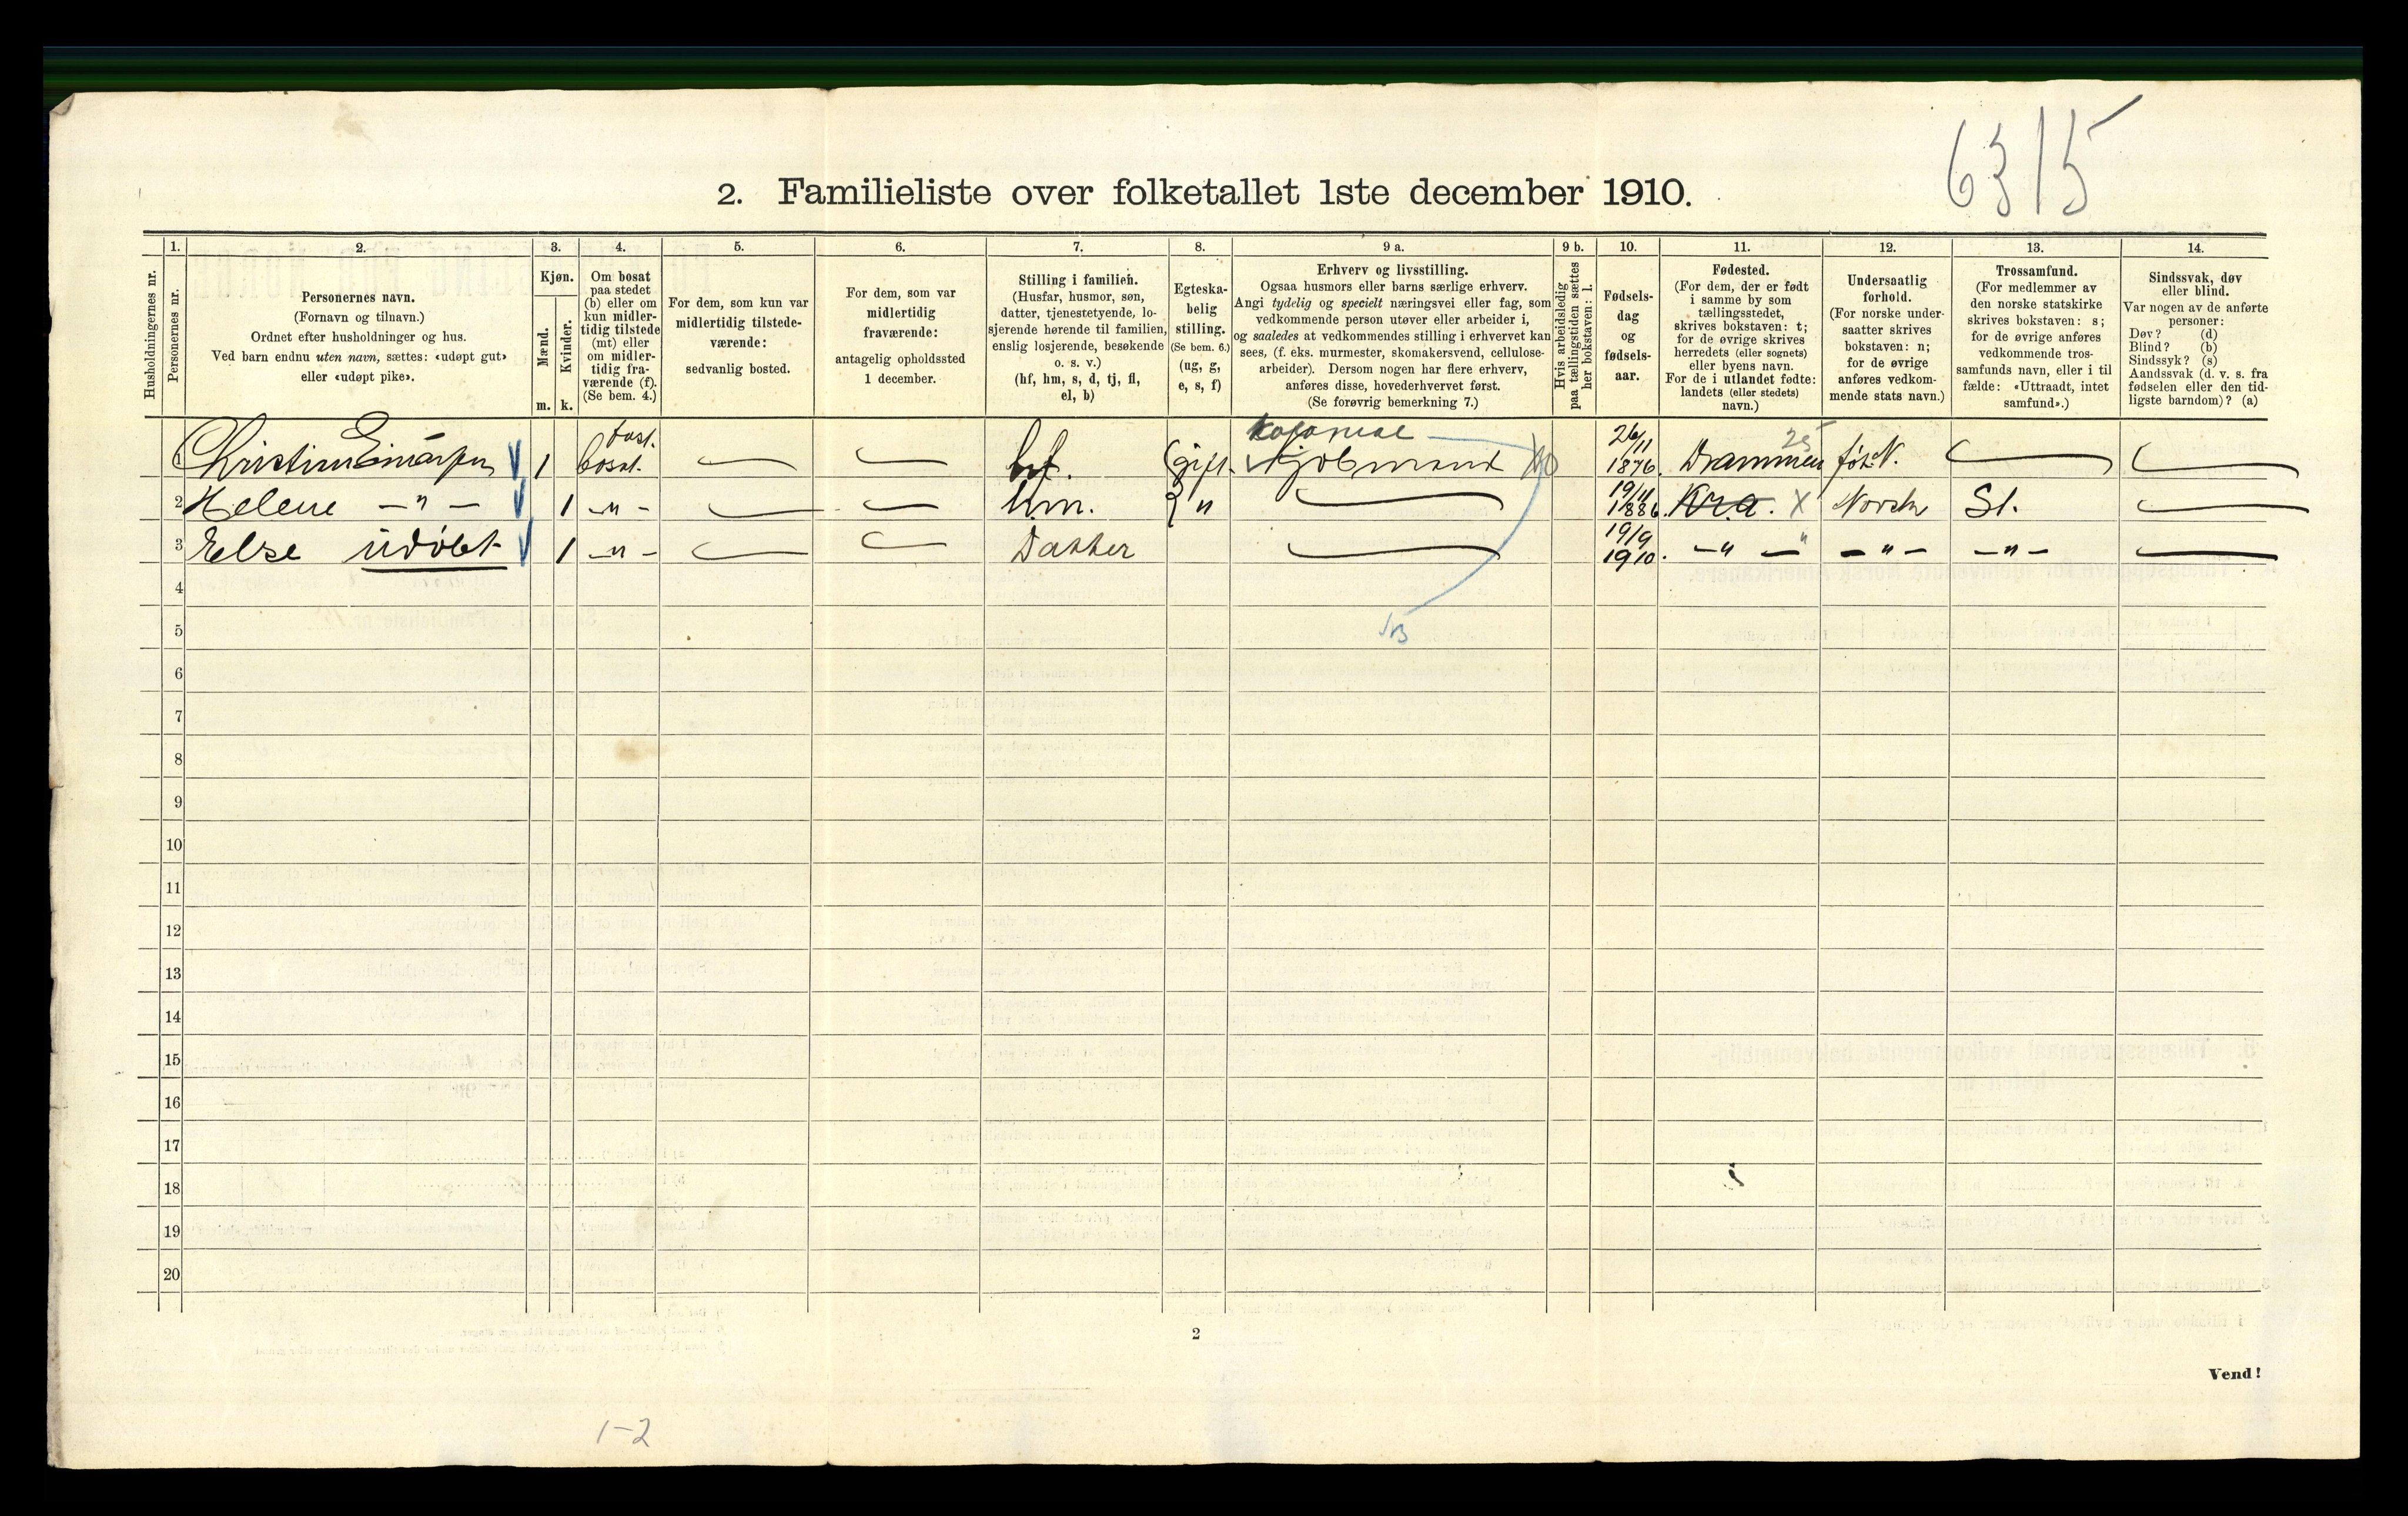 6315
2. Familieliste over folketallet 1ste december 1910.
Husholdningernes nr.
1.
Personernes nr.
2.
Personernes navn.
(Fornavn og tilnavn.)
Ordnet efter husholdninger og hus.
Ved barn endnu uten navn, sættes: «udøpt gut»
eller «udøpt pike».
3.
Kjøn.
Mænd.
Kvinder.
m. k.
4.
Om bosat
paa stedet
(b) eller om
kun midler-
tidig tilstede
(mt) eller
om midler-
tidig fra-
værende (f).
(Se bem. 4.)
5.
For dem, som kun var
midlertidig tilstede-
værende:
sedvanlig bosted.
6.
For dem, som var
midlertidig
fraværende:
antagelig opholdssted
1 december.
7.
Stilling i familien.
(Husfar, husmor, søn,
datter, tjenestetyende, lo-
sjerende hørende til familien,
enslig losjerende, besøkende
o. s. v.)
(hf, hm, s, d, tj, fl,
el, b)
8.
Egteska-
belig
stilling.
(Se bem. 6.)
(ug, g,
e, s, f)
9 a.
Erhverv og livsstilling.
Ogsaa husmors eller barns særlige erhverv.
Angi tydelig og specielt næringsvei eller fag, som
vedkommende person utøver eller arbeider i,
og saaledes at vedkommendes stilling i erhvervet kan
sees, (f. eks. murmester, skomakersvend, cellulose-
arbeider). Dersom nogen har flere erhverv,
anføres disse, hovederhvervet først.
(Se forøvrig bemerkning 7.)
9 b.
Hvis arbeidsledig
paa tællingstiden sættes
her bokstaven: l.
10.
Fødsels-
dag
og
fødsels-
aar.
11.
Fødested.
(For dem, der er født
i samme by som
tællingsstedet,
skrives bokstaven: t;
for de øvrige skrives
herredets (eller sognets)
eller byens navn.
For de i utlandet fødte:
landets (eller stedets)
navn.)
12.
Undersaatlig
forhold.
(For norske under-
saatter skrives
bokstaven: n;
for de øvrige
anføres vedkom-
mende stats navn.)
13.
Trossamfund.
(For medlemmer av
den norske statskirke
skrives bokstaven: s;
for de øvrige anføres
vedkommende tros-
samfunds navn, eller i til
fælde: «Uttraadt, intet
samfund».)
14.
Sindssvak, døv
eller blind.
Var nogen av de anførte
personer:
Døv? (d)
Blind? (b)
Sindssyk? (s)
Aandssvak (d. v. s. fra
fødselen eller den tid-
ligste barndom)? (a)
1 bosat. hf. gift. Kolonial Kjøbmand 26/11 1876. Drammen 25 N.
2 Helene — " — 1 — " — Hm. " 19/11 1886. Kra. X Norsk St.
3 Else udøbt 1 — " — Datter 19/9 1910. — " — — " — — " —
4
5
6
7
8
9
10
11
12
13
14
15
16
17
18
19
20
2
Vend!
1-2